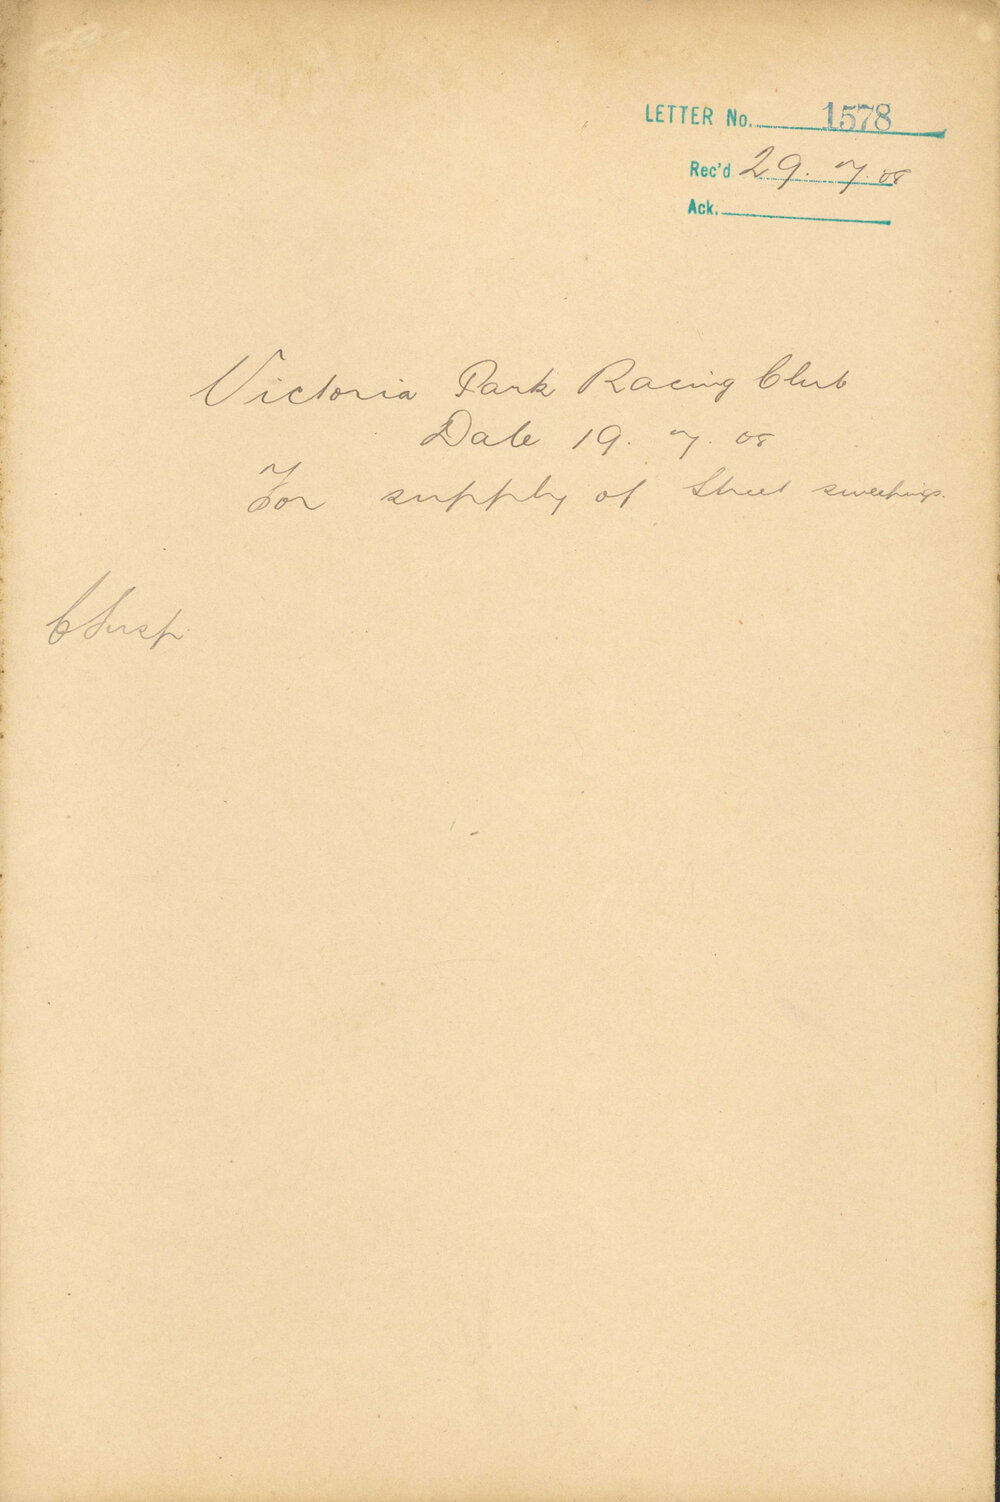 LETTER No. 1578
Rec'd 29. 7. 08
Ack.
Victoria Park Racing Club
Date 19. 7. 08
For supply of Street sweepings.
C Insp.